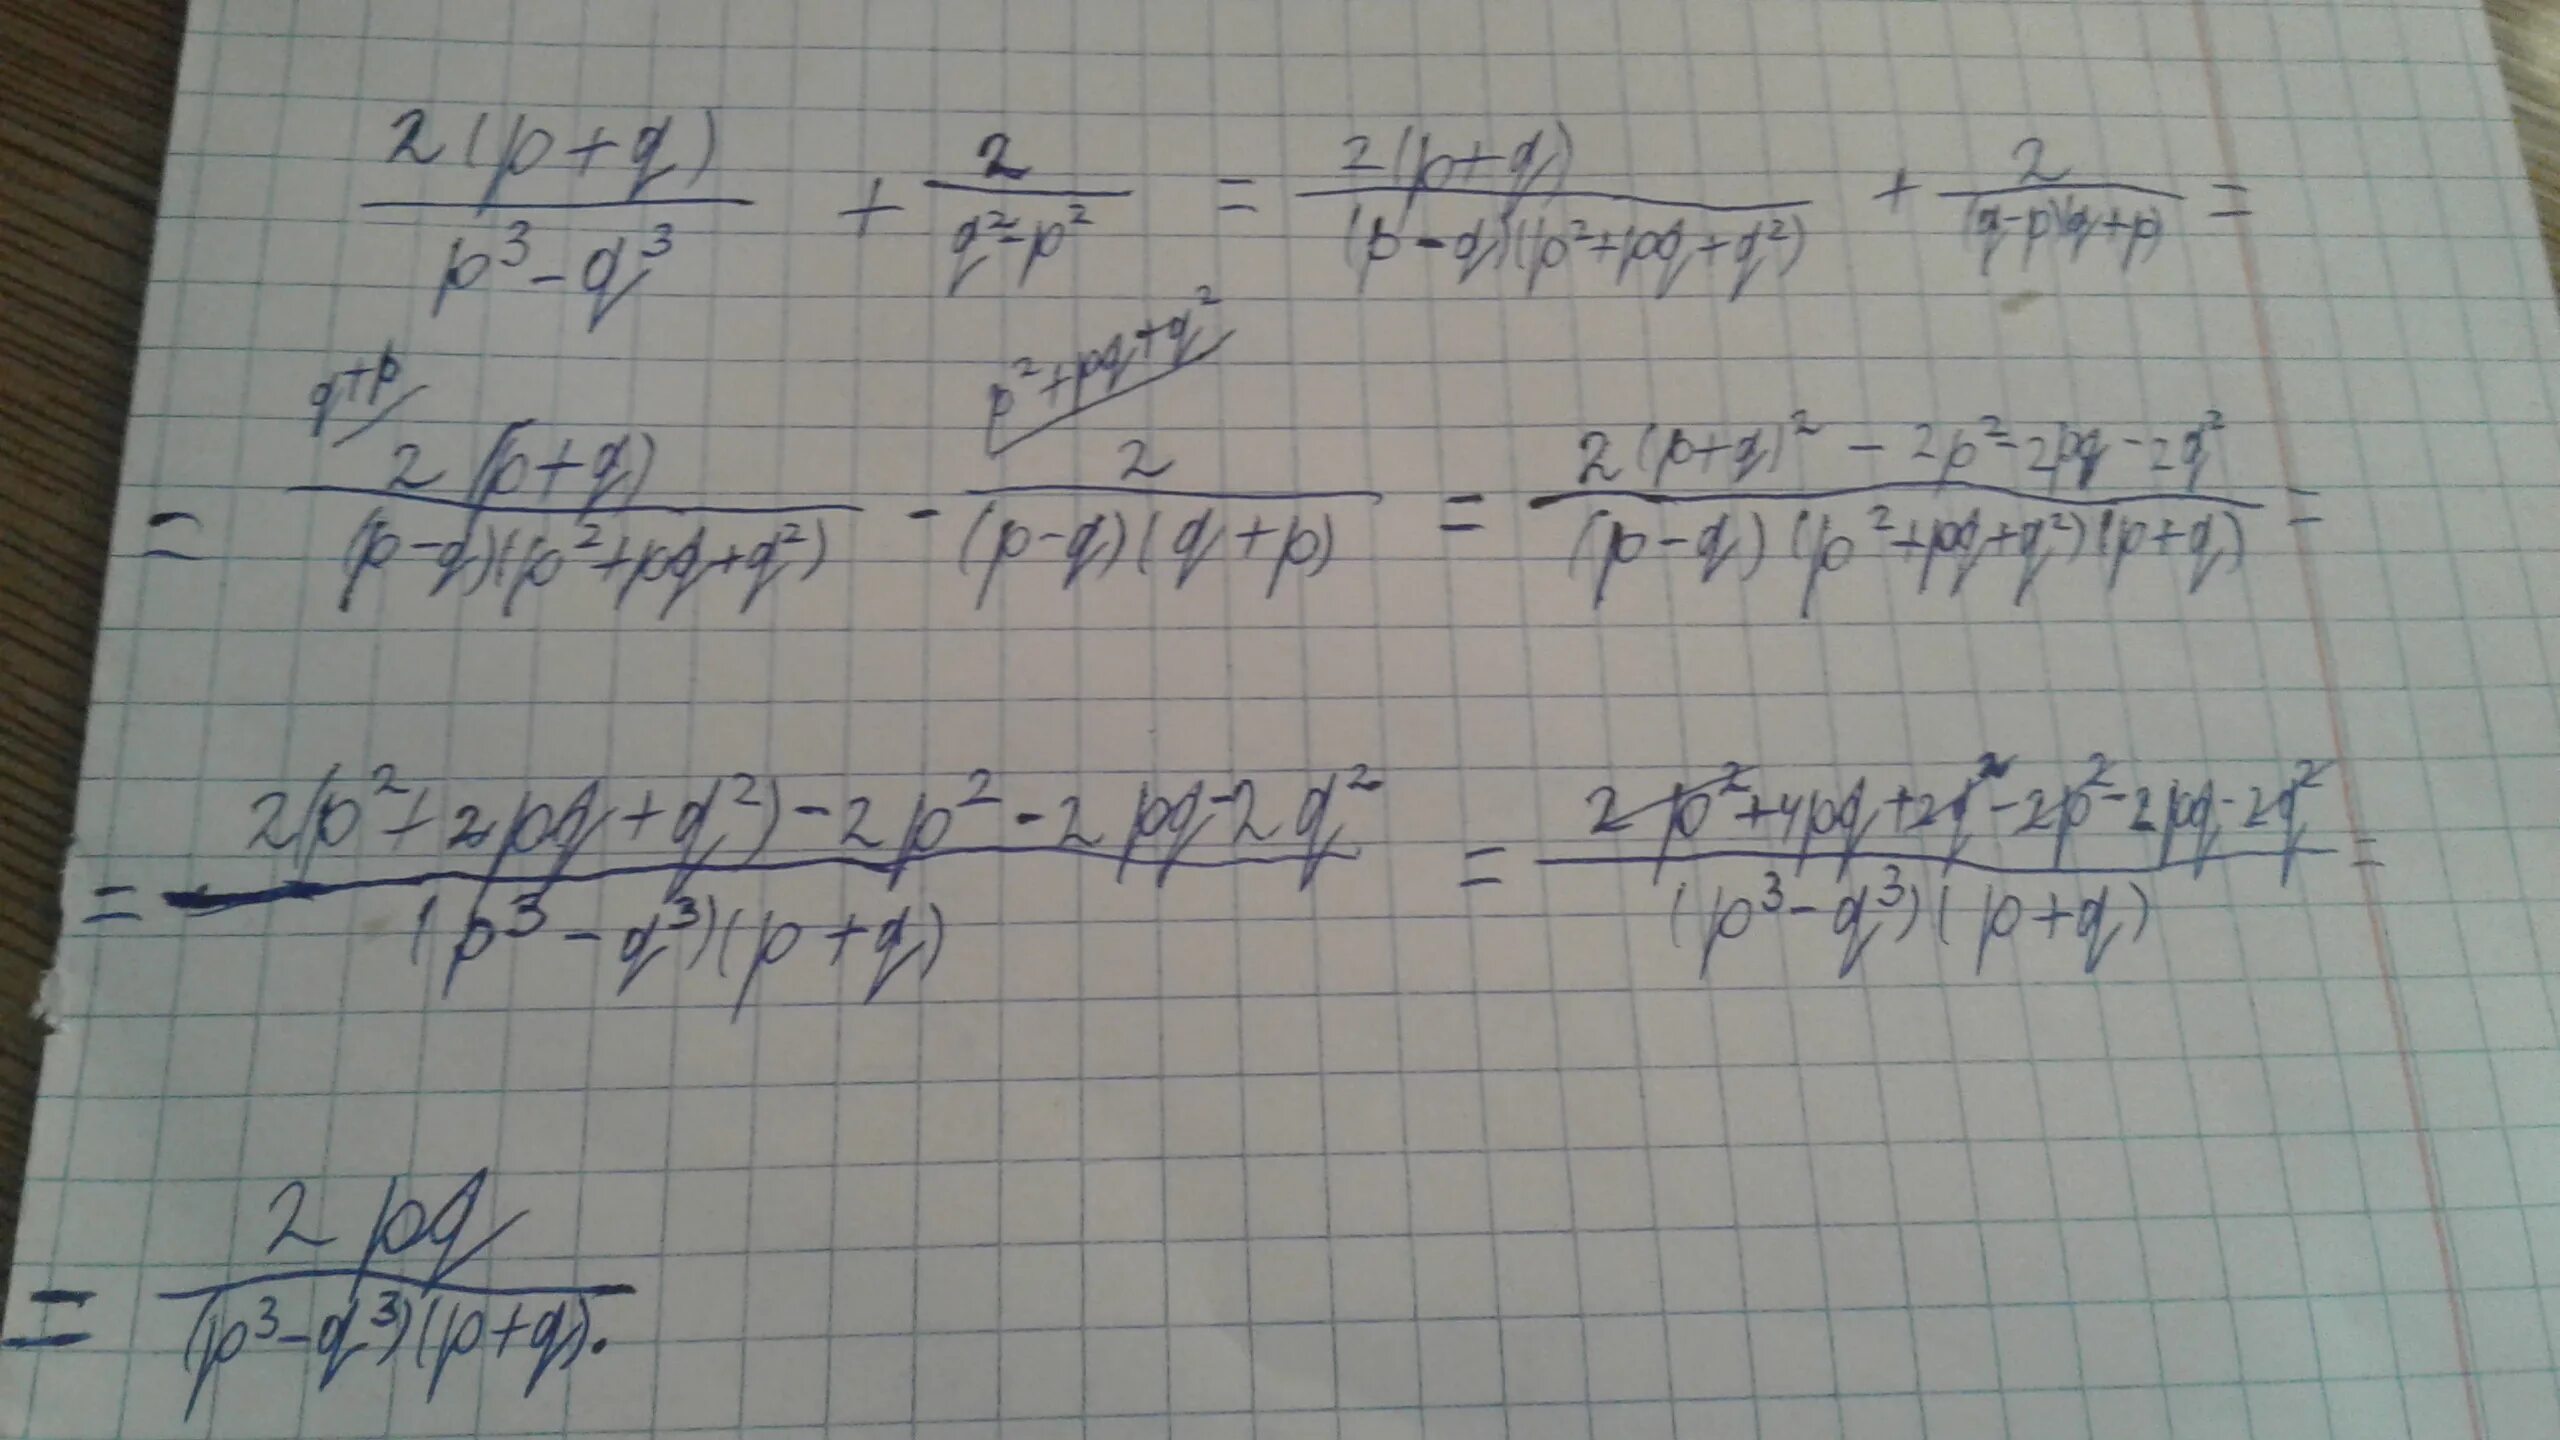 2(p+q)/(p³-q³) + 2/(q²-p²) = 2(p+q)/((p-q)(p²+pq+q²)) + 2/((q-p)(q+p)) =
q+p/ p²+pq+q²/
= 2(p+q)/((p-q)(p²+pq+q²)) - 2/((p-q)(q+p)) = (2(p+q)²-2p²-2pq-2q²)/((p-q)(p²+pq+q²)(p+q)) =
= (2(p²+2pq+q²)-2p²-2pq-2q²)/((p³-q³)(p+q)) = (2p²+4pq+2q²-2p²-2pq-2q²)/((p³-q³)(p+q)) =
= 2pq/((p³-q³)(p+q)).